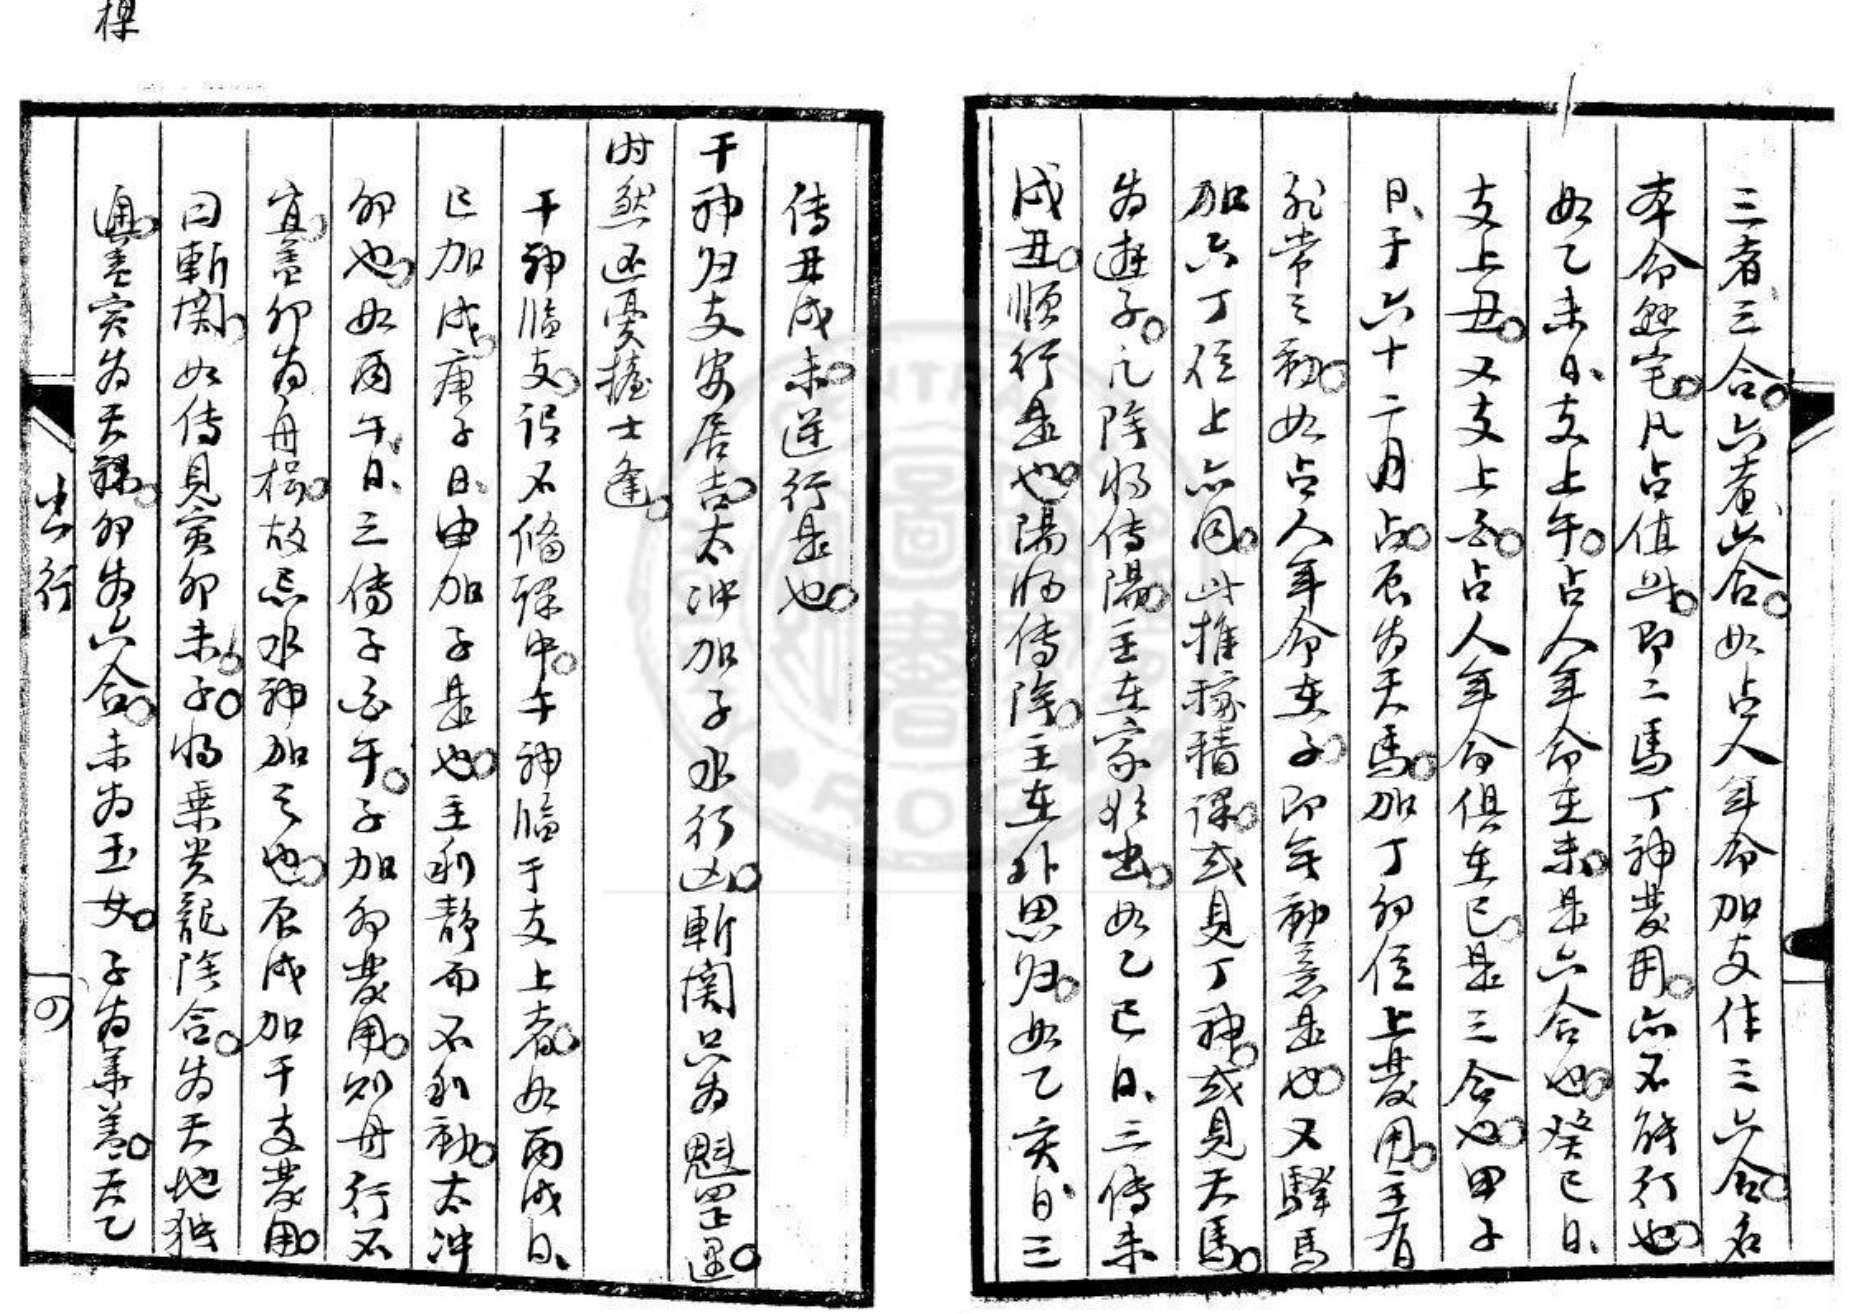 三者三合六者六合如占人年命加支作三六合名
本命恋宅凡占值此即二馬丁神發用亦不能行也
如乙未日支上午占人年命在未是六合也癸巳日
支上丑又支上酉占人年命俱在巳是三合也甲子
日于六十二月占辰为天馬加丁卯位上發用主有
非常之動如占人年命在子即年動意是也又驛馬
加六丁位上亦同此推稼穡課或見丁神或見天馬
为遊子凡陰将傳陽主在家欲出如乙巳日三傳未
戌丑順行是也陽将傳陰主在外思归如乙亥日三
傳丑戌未逆行是也
干神归支安居吉太冲加子水行凶斬関只为魁罡遇
时然还憂擔士逢
干神臨支谓不俻課中干神臨于支上者如丙戌日
巳加戌庚子日申加子是也主利静而不利動太冲
卯也如丙午日三傳子酉午子加卯發用则舟行不
宜盖卯为舟楫故忌水神加之也辰戌加干支發用
曰斬関如傳見寅卯未子将乗贵龍陰合为天地独
通盖寅为天梁卯为六合未为玉女子为華盖天乙
出行
四
樑